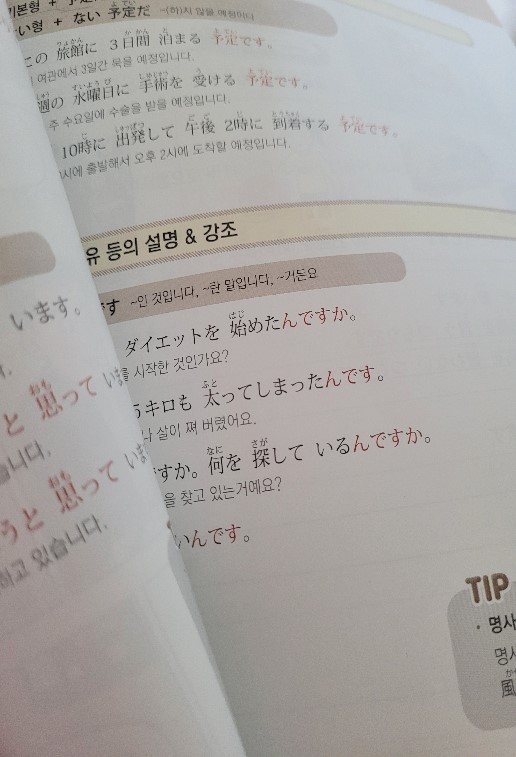 기본형 + 予定
ない형 + ない 予定だ ~(하)지 않을 예정이다
この 旅館に 3日間 泊まる 予定です。
여관에서 3일간 묵을 예정입니다.
週の 水曜日に 手術を 受ける 予定です。
주 수요일에 수술을 받을 예정입니다.
10時に 出発して 午後 2時に 到着する 予定です。
시에 출발해서 오후 2시에 도착할 예정입니다.
유 등의 설명 & 강조
です ~인 것입니다, ~란 말입니다, ~거든요
ダイエットを 始めたんですか。
를 시작한 것인가요?
キロも 太ってしまったんです。
나 살이 쪄 버렸어요.
ですか。何を 探して いるんですか。
을 찾고 있는거예요?
いんです。
います。
と 思って いま
습니다.
うと 思って いま
하고 있습니다.
TIP
· 명사
명사
風